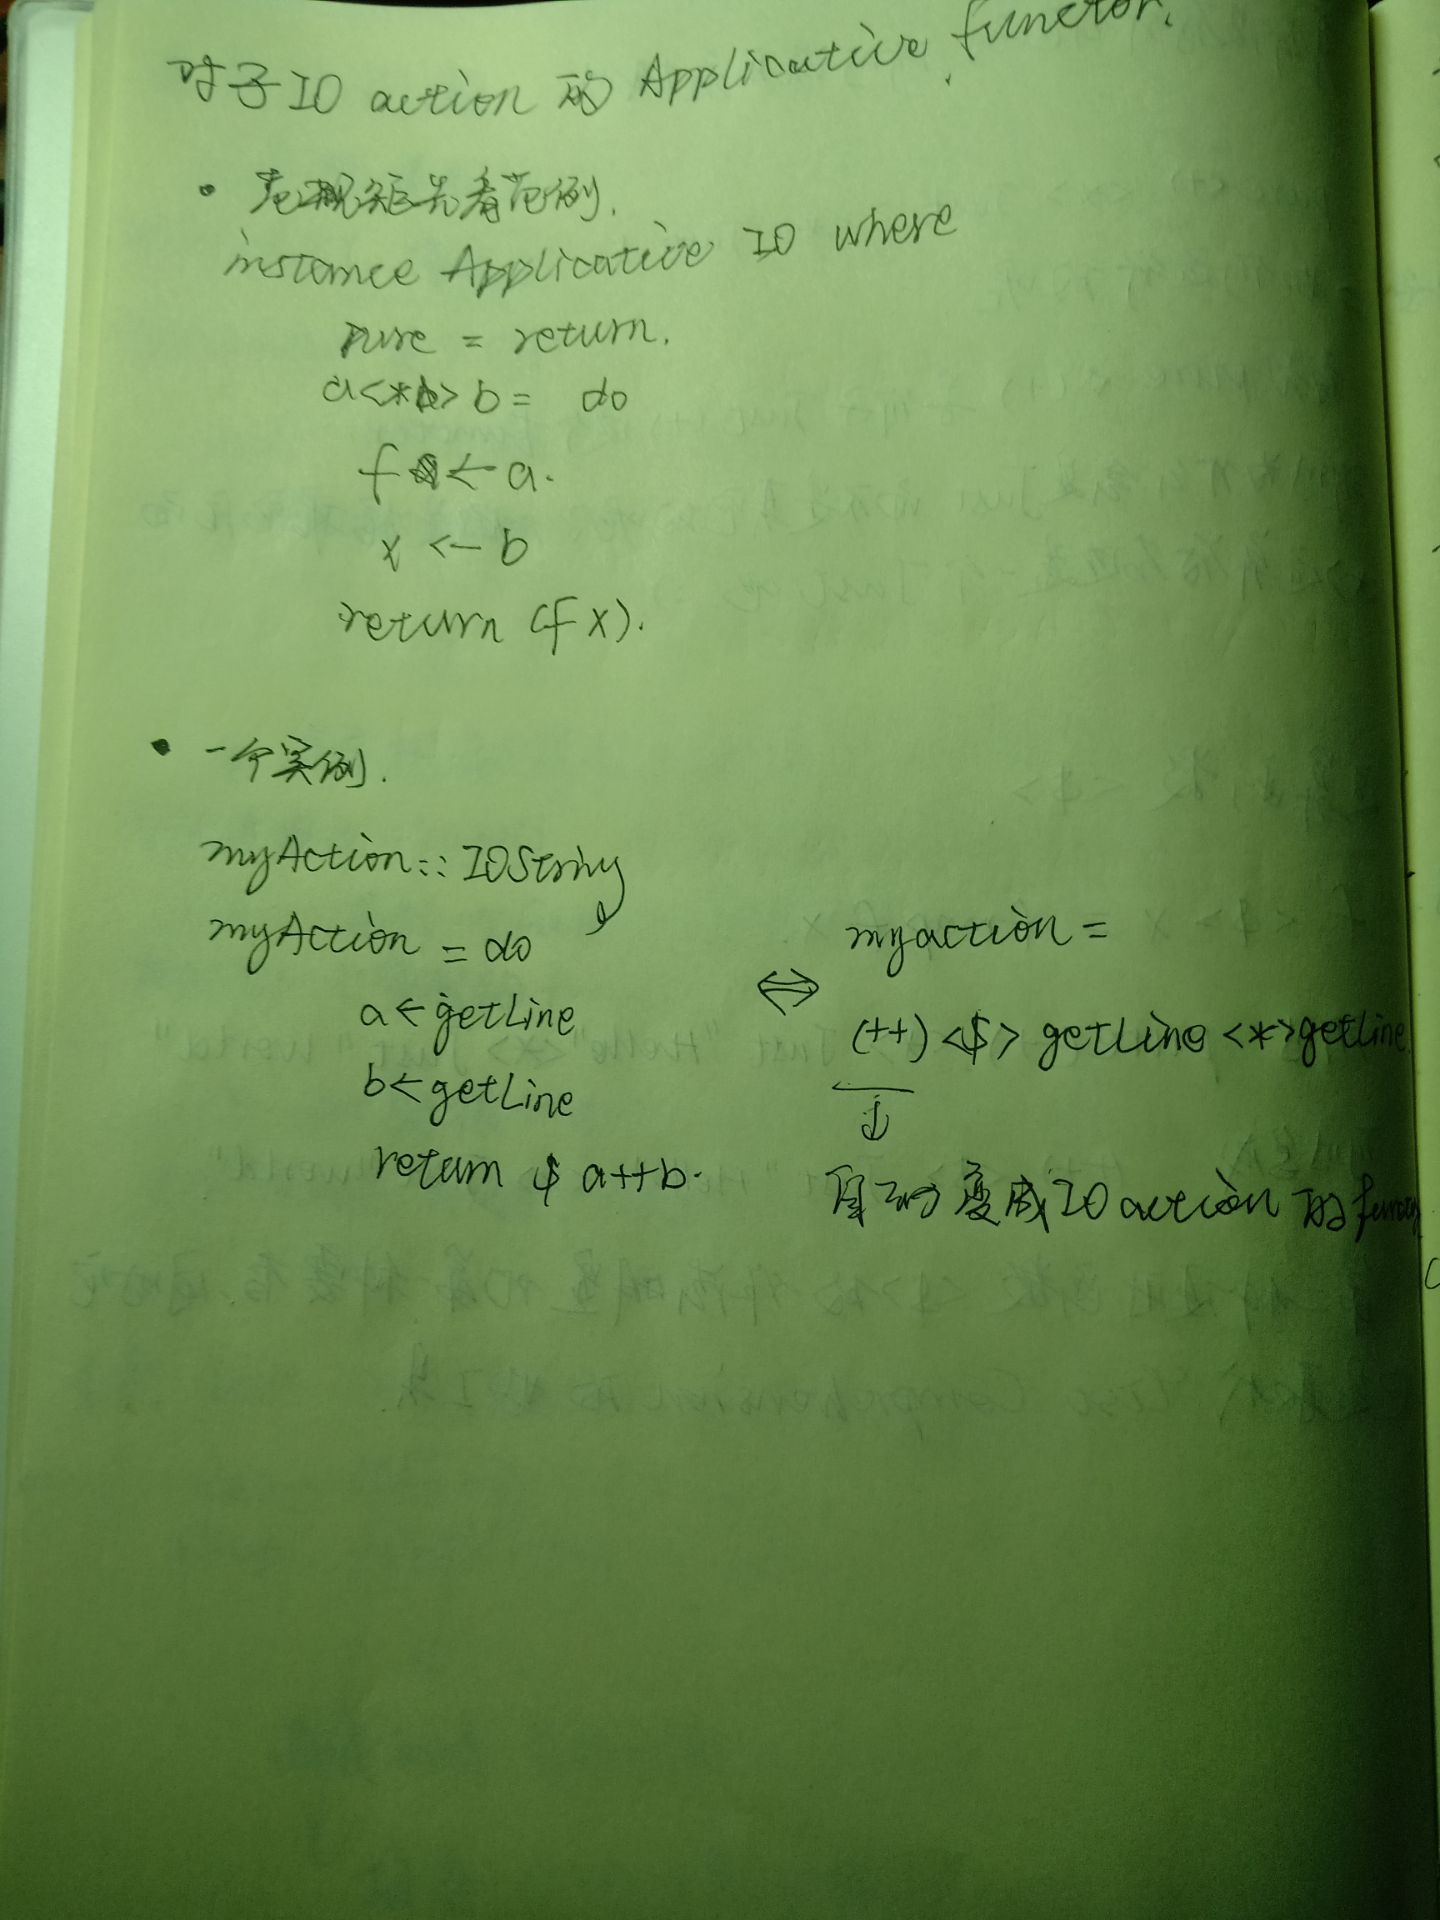 对于IO action 的 Applicative functor.
• 老规矩先看范例.
instance Applicative IO where
pure = return.
a<*>b = do
f ← a.
x ← b
return (f x).
• 一个实例.
myAction :: IO String
myAction = do
a ← getLine
b ← getLine
return $ a++b.
⇔
myaction =
(++) <$> getLine <*> getLine
↓
自动变成IO action 的